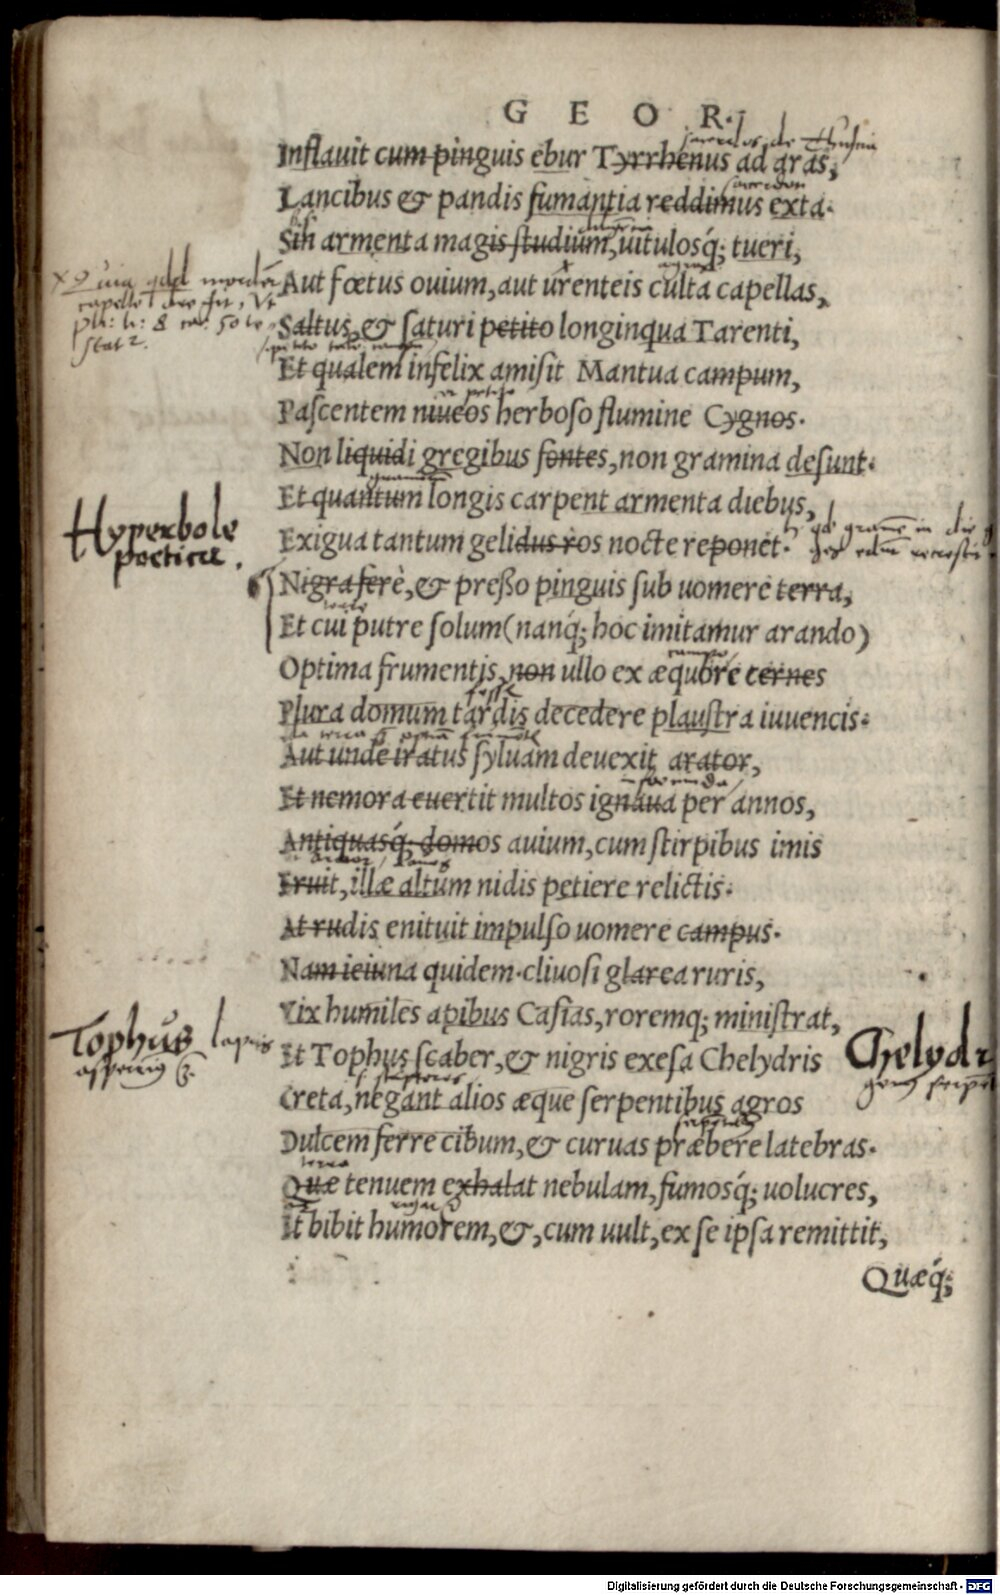 GEOR.
Inflauit cum pinguis ebur Tyrrhenus ad aras,
Lancibus & pandis fumantia reddimus exta.
Sin armenta magis studium, uitulosq́; tueri,
Aut fœtus ouium, aut urenteis culta capellas,
Saltus, & saturi petito longinqua Tarenti,
Et qualem infelix amisit Mantua campum,
Pascentem niueos herboso flumine Cygnos.
Non liquidi gregibus fontes, non gramina desunt.
Et quantum longis carpent armenta diebus,
Hyperbole
poeticae.
Exigua tantum gelidus ros nocte reponet.
Nigra ferè, & presso pinguis sub uomere terra,
Et cui putre solum (nanq́; hoc imitamur arando)
Optima frumentis, non ullo ex æquore cernes
Plura domum tardis decedere plaustra iuuencis.
Aut unde iratus syluam deuexit arator,
Et nemora euertit multos ignaua per annos,
Antiquasq́; domos auium, cum stirpibus imis
Eruit, illæ altum nidis petiere relictis.
At rudis enituit impulso uomere campus.
Nam ieiuna quidem cliuosi glarea ruris,
Vix humiles apibus Casias, roremq; ministrat,
Tophus lapis
Et Tophus scaber, & nigris exesa Chelydris
Creta, negant alios æque serpentibus agros
Dulcem ferre cibum, & curuas præbere latebras.
Quæ tenuem exhalat nebulam, fumosq́; uolucres,
Et bibit humorem, &, cum uult, ex se ipsa remittit,
Quæq́;
Digitalisierung gefördert durch die Deutsche Forschungsgemeinschaft - DFG